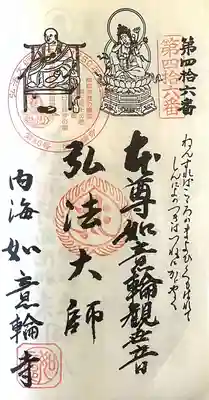 第四拾六番
第四拾六番
わんすればこころのまよひくもはれて
しんによのつきはつねにかゞやく
本尊如意輪觀世音
弘法大師
内海如意輪寺